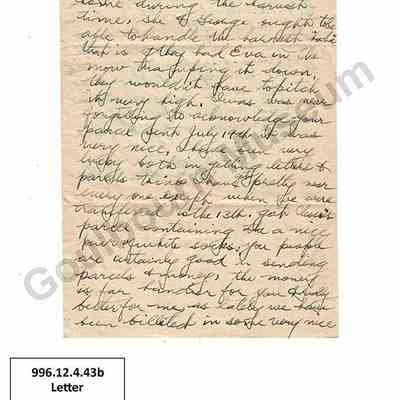 during the harvest
time, she & George ought to be
able to handle the harvest
that is if they had Eva in the
mow tramping it down,
they wouldn't have to pitch
it very high. I was near
forgetting to acknowledge your
parcel sent July 19th it was
very nice, I have been very
lucky both in getting letters &
parcels
every one except when we were
transferred to the 13th. got
parcel containing a nice
pair of white socks, you people
are certainly good in sending
parcels & money, the money
is far handier for you &
better for me, as lately we have
been billeted in some very nice
Goulbourn Museum
996.12.4.43b
Letter